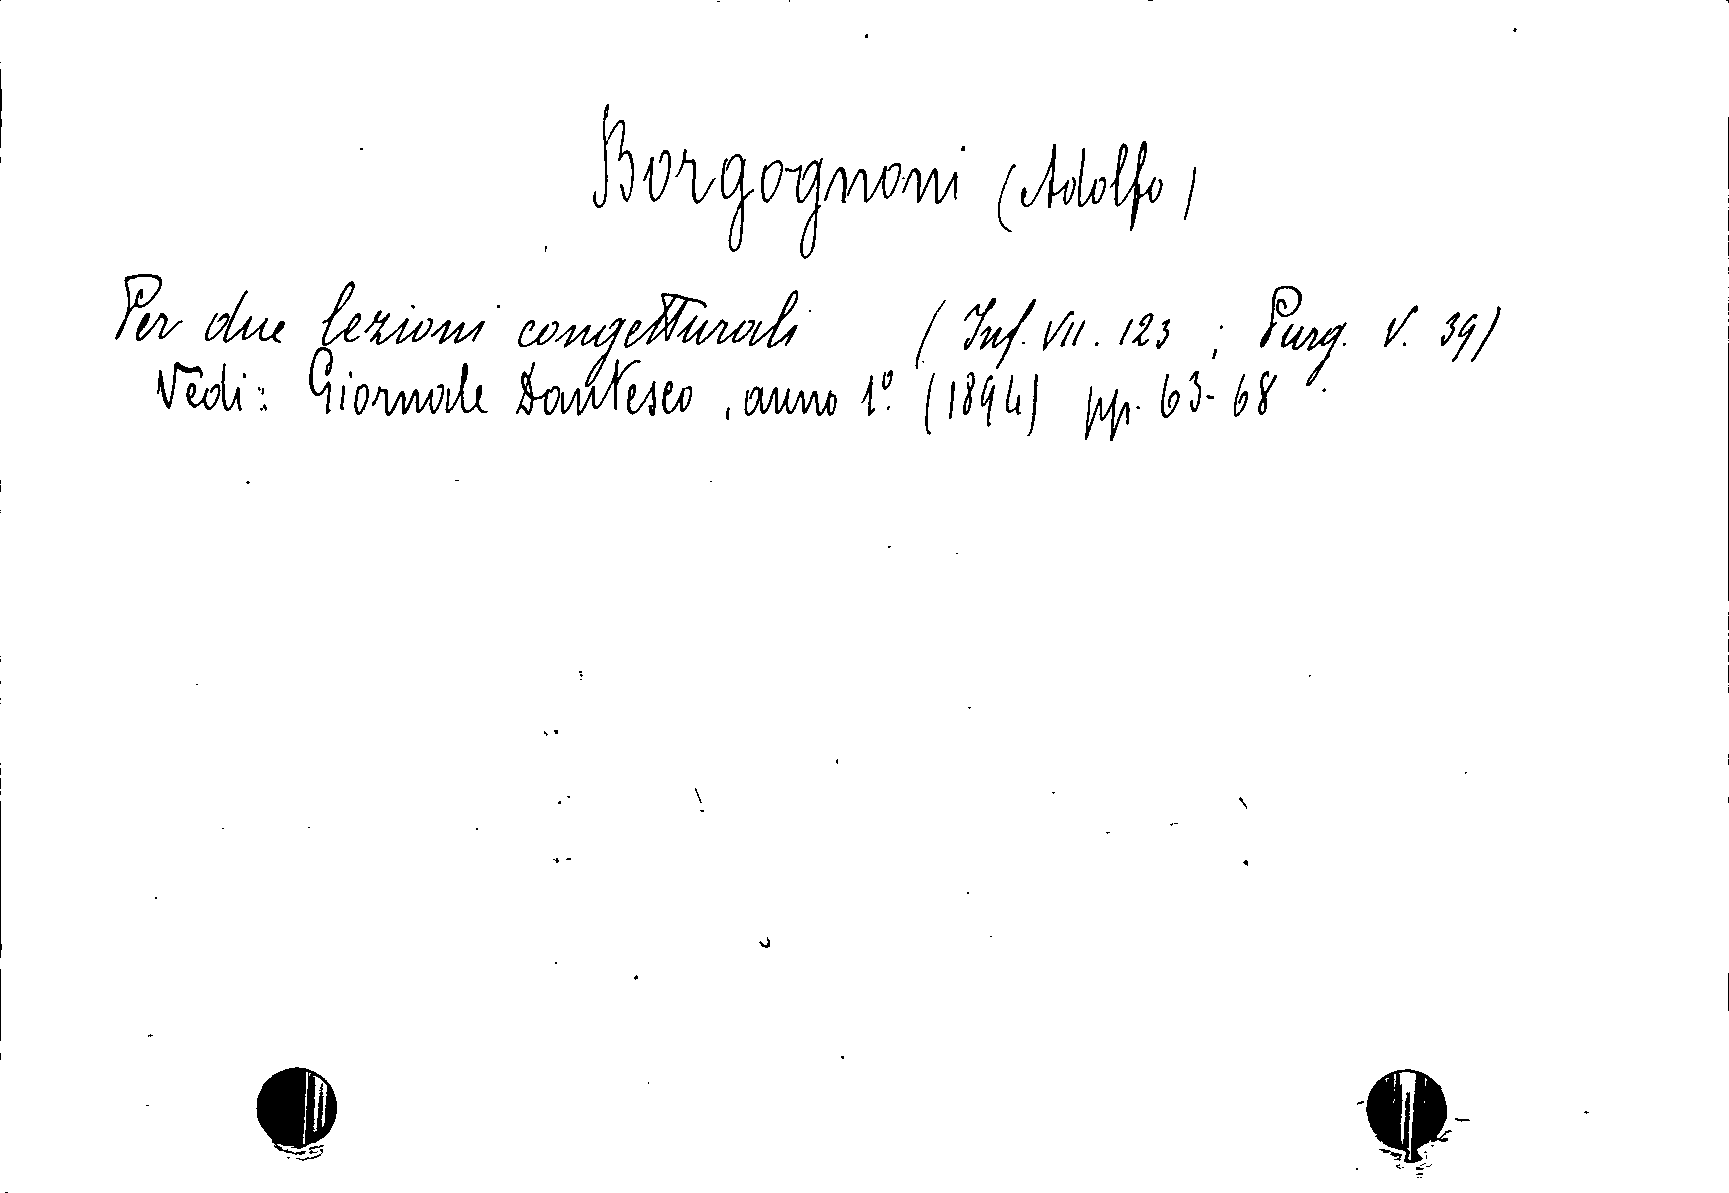 Borgognoni (Adolfo)
Per due lezioni congetturali (Inf. VII. 123 ; Purg. V. 39)
Vedi: Giornale Dantesco, anno 1º. (1894) pp. 63-68.